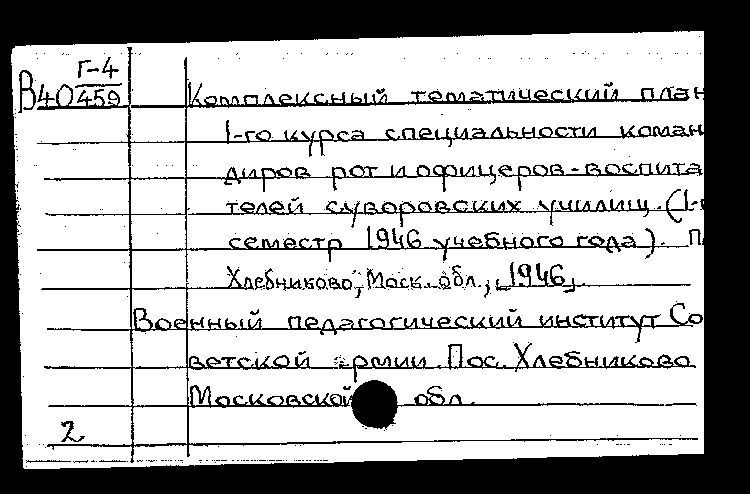 Г-4
В40 459
Комплексный тематический план
1-го курса специальности коман
диров рот и офицеров-воспита
телей суворовских училищ. (1-
семестр 1946 учебного года). П
Хлебниково, Моск. обл., 1946.
Военный педагогический институт Со
ветской армии. Пос. Хлебниково
Московской обл.
2